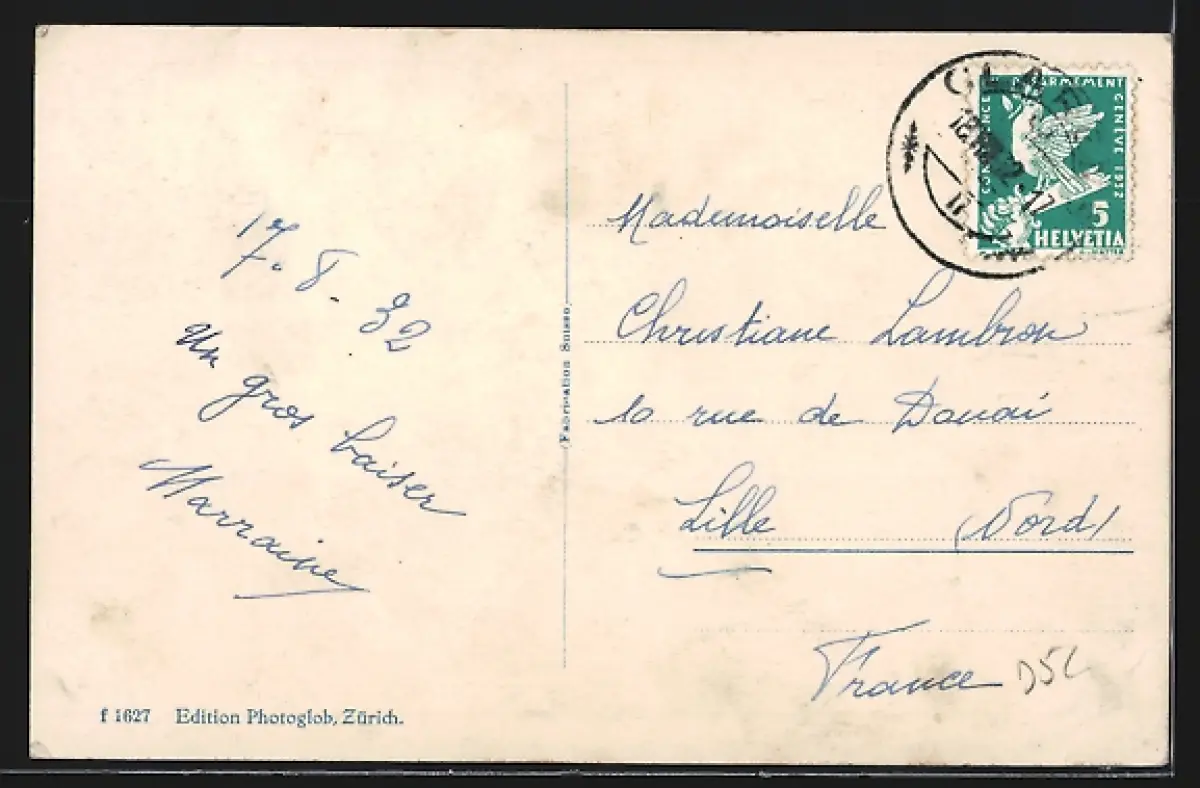 17. 8. 32
un
gros baiser
Marraine
f 1627 Edition Photoglob, Zürich.
(Fabrication Suisse)
CONFERENCE DESARMEMENT GENEVE 1932
5
HELVETIA
Mademoiselle
Christiane Lambron
10 rue de Douai
Lille (Nord)
France